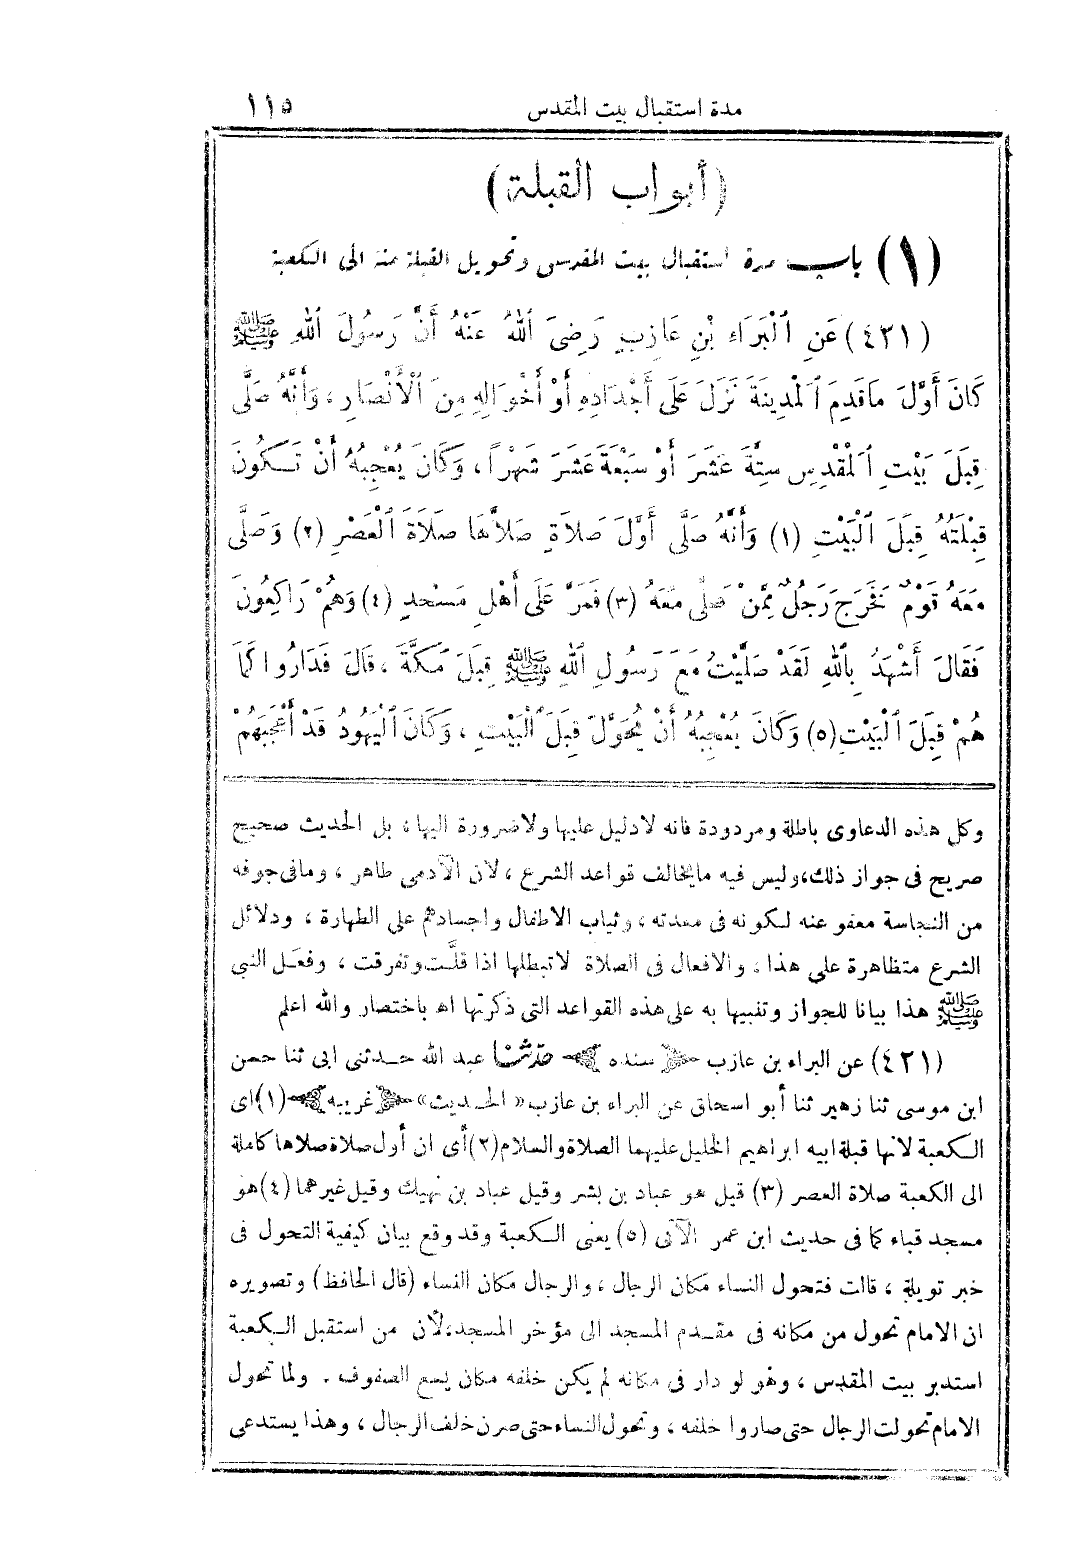 مدة استقبال بيت المقدس ١١٥
(أبواب القبلة)
(١) باب مدة استقبال بيت المقدس وتحويل القبلة منه الى الكعبة
(٤٢١) عَنِ ٱلْبَرَاءِ بْنِ عَازِبٍ رَضِىَ ٱللهُ عَنْهُ أَنَّ رَسُولَ ٱللهِ ﷺ
كَانَ أَوَّلَ مَاقَدِمَ ٱلْمَدِينَةَ نَزَلَ عَلَى أَجْدَادِهِ أَوْ أَخْوَالِهِ مِنَ ٱلْأَنْصَارِ ، وَأَنَّهُ صَلَّى
قِبَلَ بَيْتِ ٱلْمَقْدِسِ سِتَّةَ عَشَرَ أَوْ سَبْعَةَ عَشَرَ شَهْرًا ، وَكَانَ يُعْجِبُهُ أَنْ تَكُونَ
قِبْلَتُهُ قِبَلَ ٱلْبَيْتِ (١) وَأَنَّهُ صَلَّى أَوَّلَ صَلَاةٍ صَلاَّهَا صَلَاةَ ٱلْعَصْرِ (٢) وَصَلَّى
مَعَهُ قَوْمٌ فَخَرَجَ رَجُلٌ مِمَّنْ صَلَّى مَعَهُ (٣) فَمَرَّ عَلَى أَهْلِ مَسْجِدٍ (٤) وَهُمْ رَاكِعُونَ
فَقَالَ أَشْهَدُ بِٱللهِ لَقَدْ صَلَّيْتُ مَعَ رَسُولِ ٱللهِ ﷺ قِبَلَ مَكَّةَ ، قَالَ فَدَارُوا كَمَا
هُمْ قِبَلَ ٱلْبَيْتِ (٥) وَكَانَ يُعْجِبُهُ أَنْ يُحَوَّلَ قِبَلَ ٱلْبَيْتِ ، وَكَانَ ٱلْيَهُودُ قَدْ أَعْجَبَهُمْ
وكل هذه الدعاوى باطلة ومردودة فانه لادليل عليها ولاضرورة اليها ، بل الحديث صحيح
صريح فى جواز ذلك ، وليس فيه مايخالف قواعد الشرع ، لان الآدمى طاهر ، ومافى جوفه
من النجاسة معفو عنه لكونه فى معدته ، وثياب الاطفال واجسادهم على الطهارة ، ودلائل
الشرع متظاهرة على هذا ، والافعال فى الصلاة لاتبطلها اذا قلَّت وتفرقت ، وفعل النبى
ﷺ هذا بيانا للجواز وتنبيها به على هذه القواعد التى ذكرتها اه باختصار والله اعلم
(٤٢١) عن البراء بن عازب ﴿سنده﴾ حدثنا عبد الله حدثنى ابى ثنا حسن
ابن موسى ثنا زهير ثنا أبو اسحاق عن البراء بن عازب «الحديث» ﴿غريبه﴾ (١) اى
الكعبة لانها قبلة ابيه ابراهيم الخليل عليهما الصلاة والسلام (٢) أى ان أول صلاة صلاها كاملة
الى الكعبة صلاة العصر (٣) قيل هو عباد بن بشر وقيل عباد بن نهيك وقيل غيرهما (٤) هو
مسجد قباء كما فى حديث ابن عمر الآتى (٥) يعنى الكعبة وقد وقع بيان كيفية التحول فى
خبر تويلة ، قالت فتحول النساء مكان الرجال ، والرجال مكان النساء (قال الحافظ) وتصويره
ان الامام تحول من مكانه فى مقدم المسجد الى مؤخر المسجد ، لأن من استقبل الكعبة
استدبر بيت المقدس ، وهو لو دار فى مكانه لم يكن خلفه مكان يسع الصفوف . ولما تحول
الامام تحولت الرجال حتى صاروا خلفه ، وتحول النساء حتى صرن خلف الرجال ، وهذا يستدعى